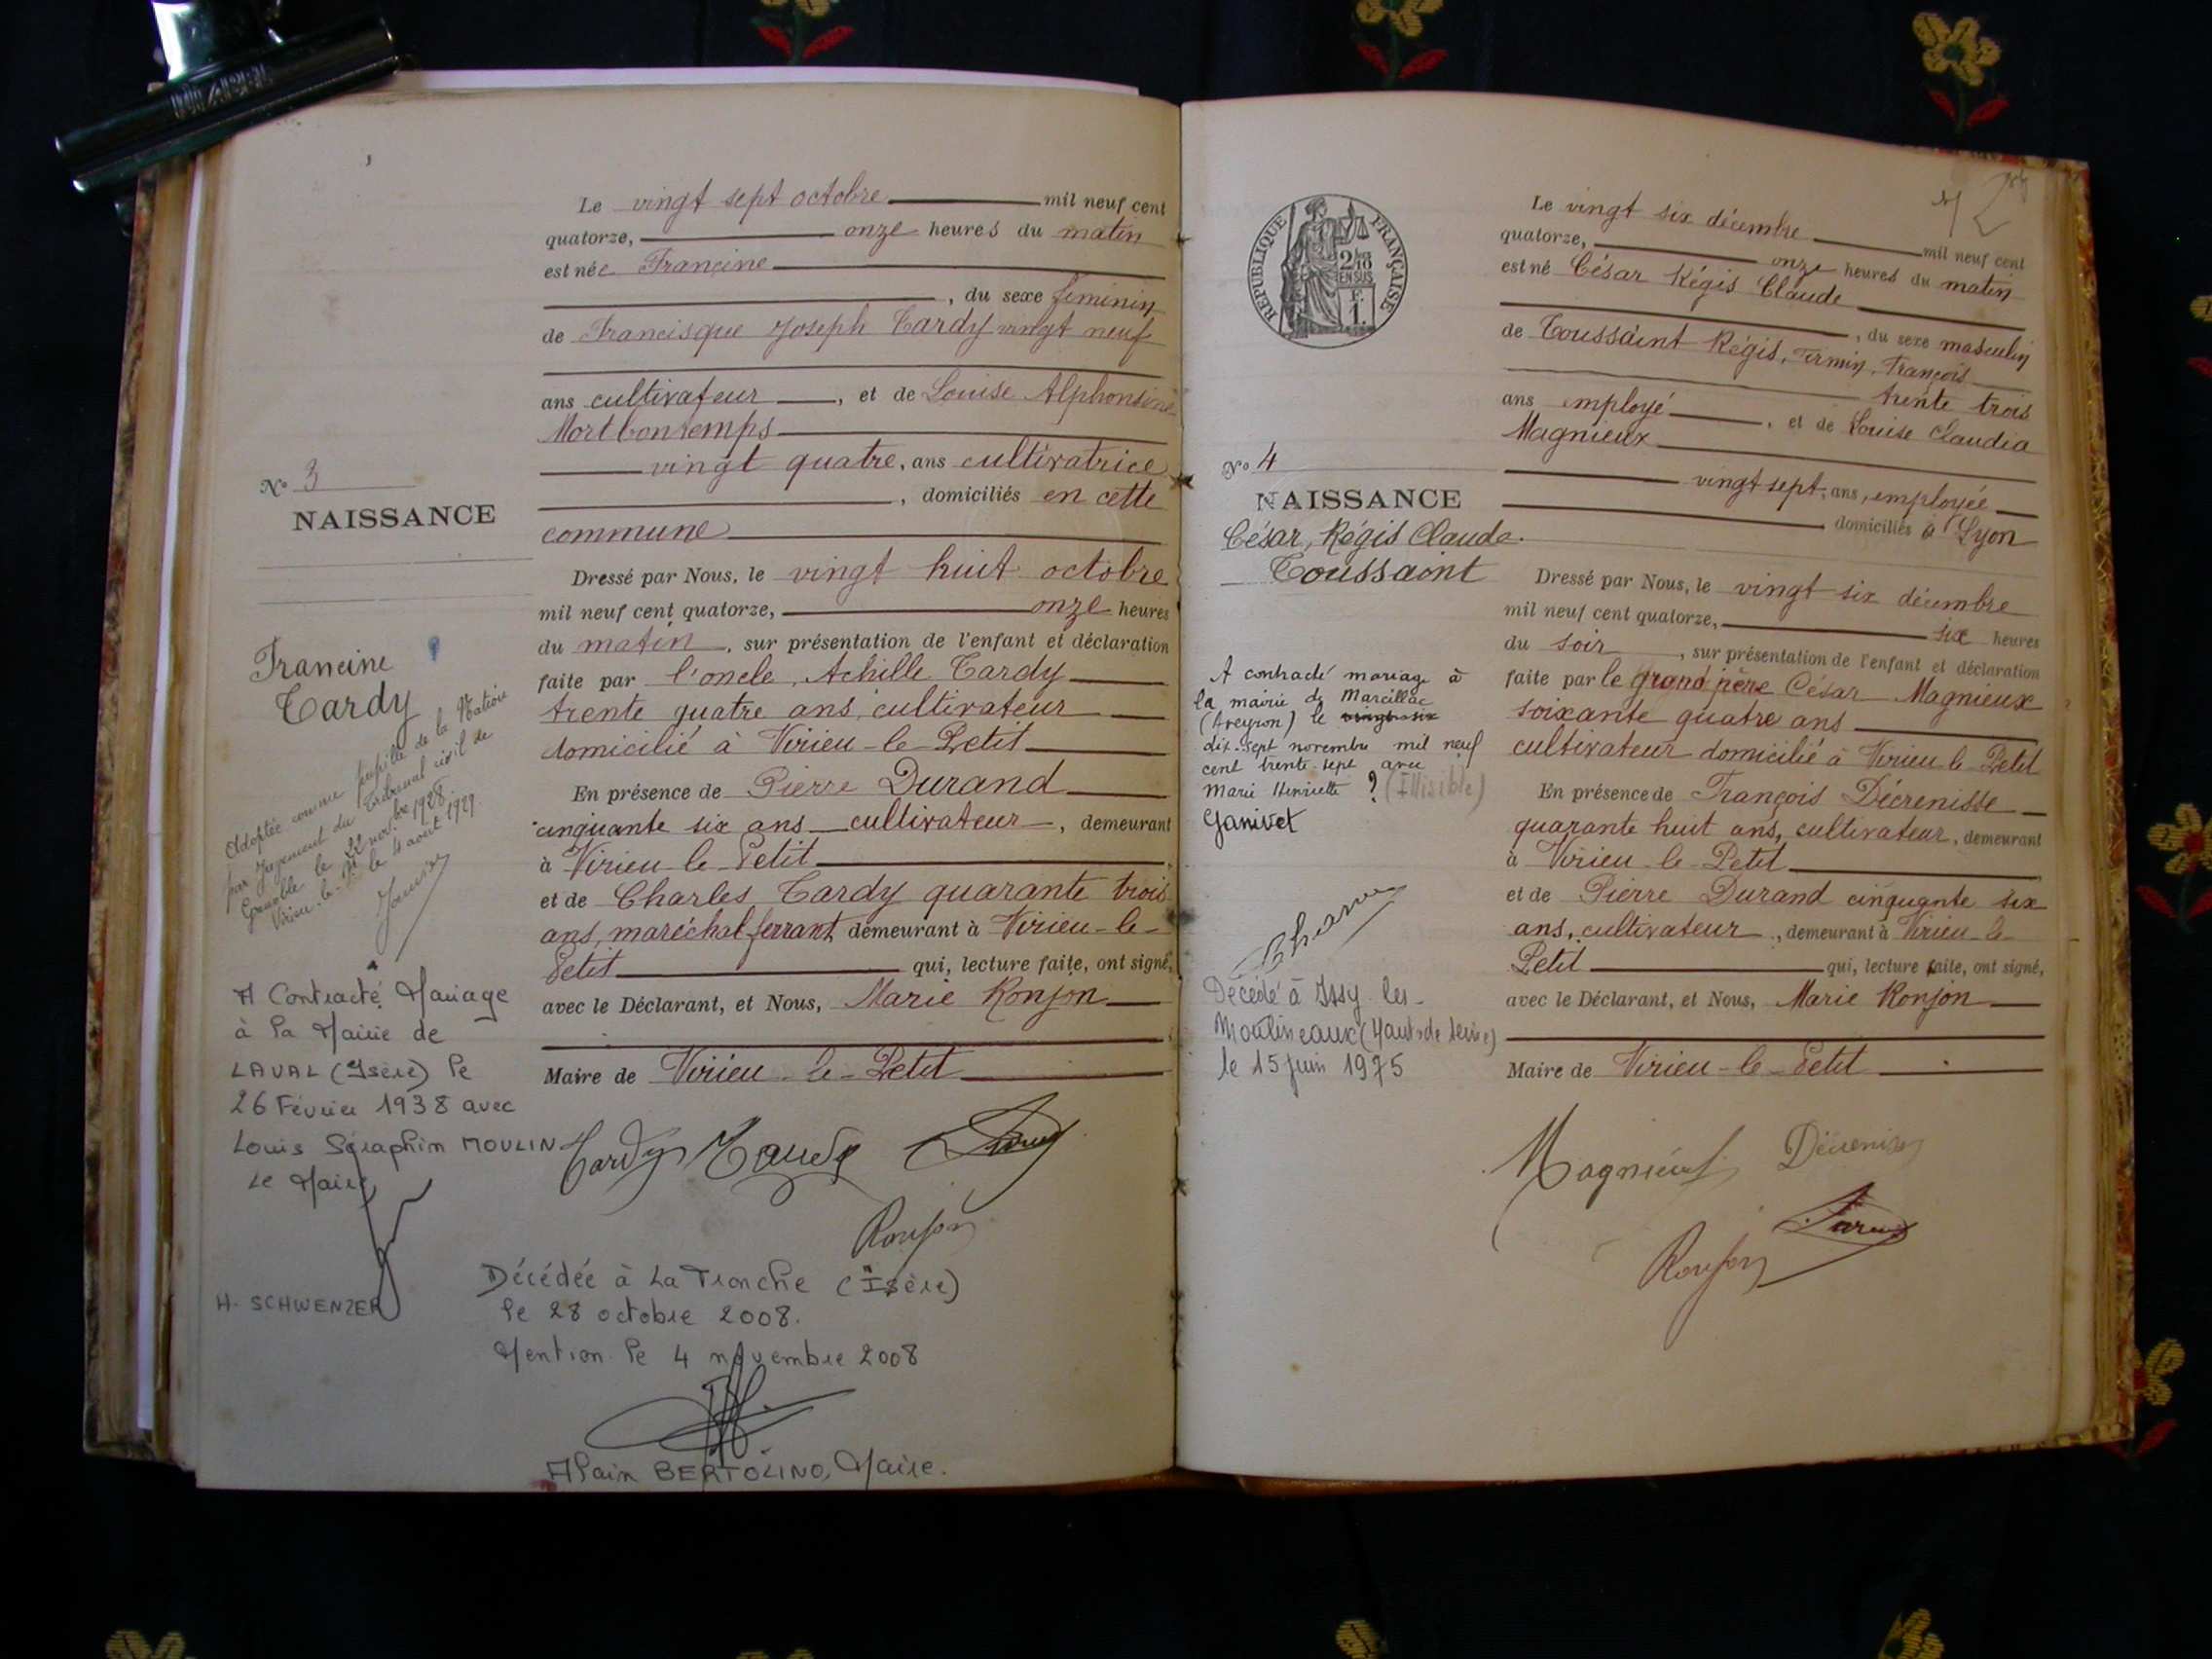 Le vingt sept octobre mil neuf cent
quatorze, onze heures du matin
est née Francine
, du sexe féminin
de Francisque Joseph Tardy vingt neuf
ans cultivateur, et de Louise Alphonsine
Mortbontemps
vingt quatre, ans cultivatrice
, domiciliés en cette
commune
Dressé par Nous, le vingt huit octobre
mil neuf cent quatorze, onze heures
du matin, sur présentation de l'enfant et déclaration
faite par l'oncle, Achille Tardy
trente quatre ans, cultivateur
domicilié à Virieu-le-Petit
En présence de Pierre Durand
cinquante six ans cultivateur, demeurant
à Virieu-le-Petit
et de Charles Tardy quarante trois
ans, maréchal ferrant, demeurant à Virieu-le-
Petit qui, lecture faite, ont signé,
avec le Déclarant, et Nous, Marie Ronjon
Maire de Virieu-le-Petit
Tardy Tardy
Ronjon
No 3
NAISSANCE
Francine
Tardy
Adoptée comme pupille de la Nation
par Jugement du Tribunal civil de
Grenoble le 22 novbre 1928.
Virieu-le-Pt le 4 août 1929
A Contracté Mariage
à la Mairie de
LAVAL (Isère) le
26 Février 1938 avec
Louis Séraphin MOULIN
Le Maire
H. SCHWENZER
Décédée à La Tronche (Isère)
le 28 octobre 2008.
Mention le 4 novembre 2008
Alain BERTOLINO, Maire.
RÉPUBLIQUE FRANÇAISE
2/10
EN SUS
F.
1.
Le vingt six décembre mil neuf cent
quatorze, onze heures du matin
est né César Régis Claude
, du sexe masculin
de Toussaint Régis, Firmin, François
trente trois
ans employé, et de Louise Claudia
Magnieux
vingt sept, ans, employée
domiciliés à Lyon
Dressé par Nous, le vingt six décembre
mil neuf cent quatorze, six heures
du soir, sur présentation de l'enfant et déclaration
faite par le grand père César Magnieux
soixante quatre ans
cultivateur domicilié à Virieu-le-Petit
En présence de François Décrenisse
quarante huit ans, cultivateur, demeurant
à Virieu-le-Petit
et de Pierre Durand cinquante six
ans, cultivateur, demeurant à Virieu-le-
Petit qui, lecture faite, ont signé,
avec le Déclarant, et Nous, Marie Ronjon
Maire de Virieu-le-Petit
Magnieux Décrenisse
Ronjon
No 4
NAISSANCE
César, Régis Claude.
Toussaint
A contracté mariage à
la mairie de Marcillac
(Aveyron) le vingt-six
dix-sept novembre mil neuf
cent trente-sept avec
Marie Henriette ? (Illisible)
Ganivet
Décédé à Issy-les-
Moulineaux (Hauts de Seine)
le 15 juin 1975